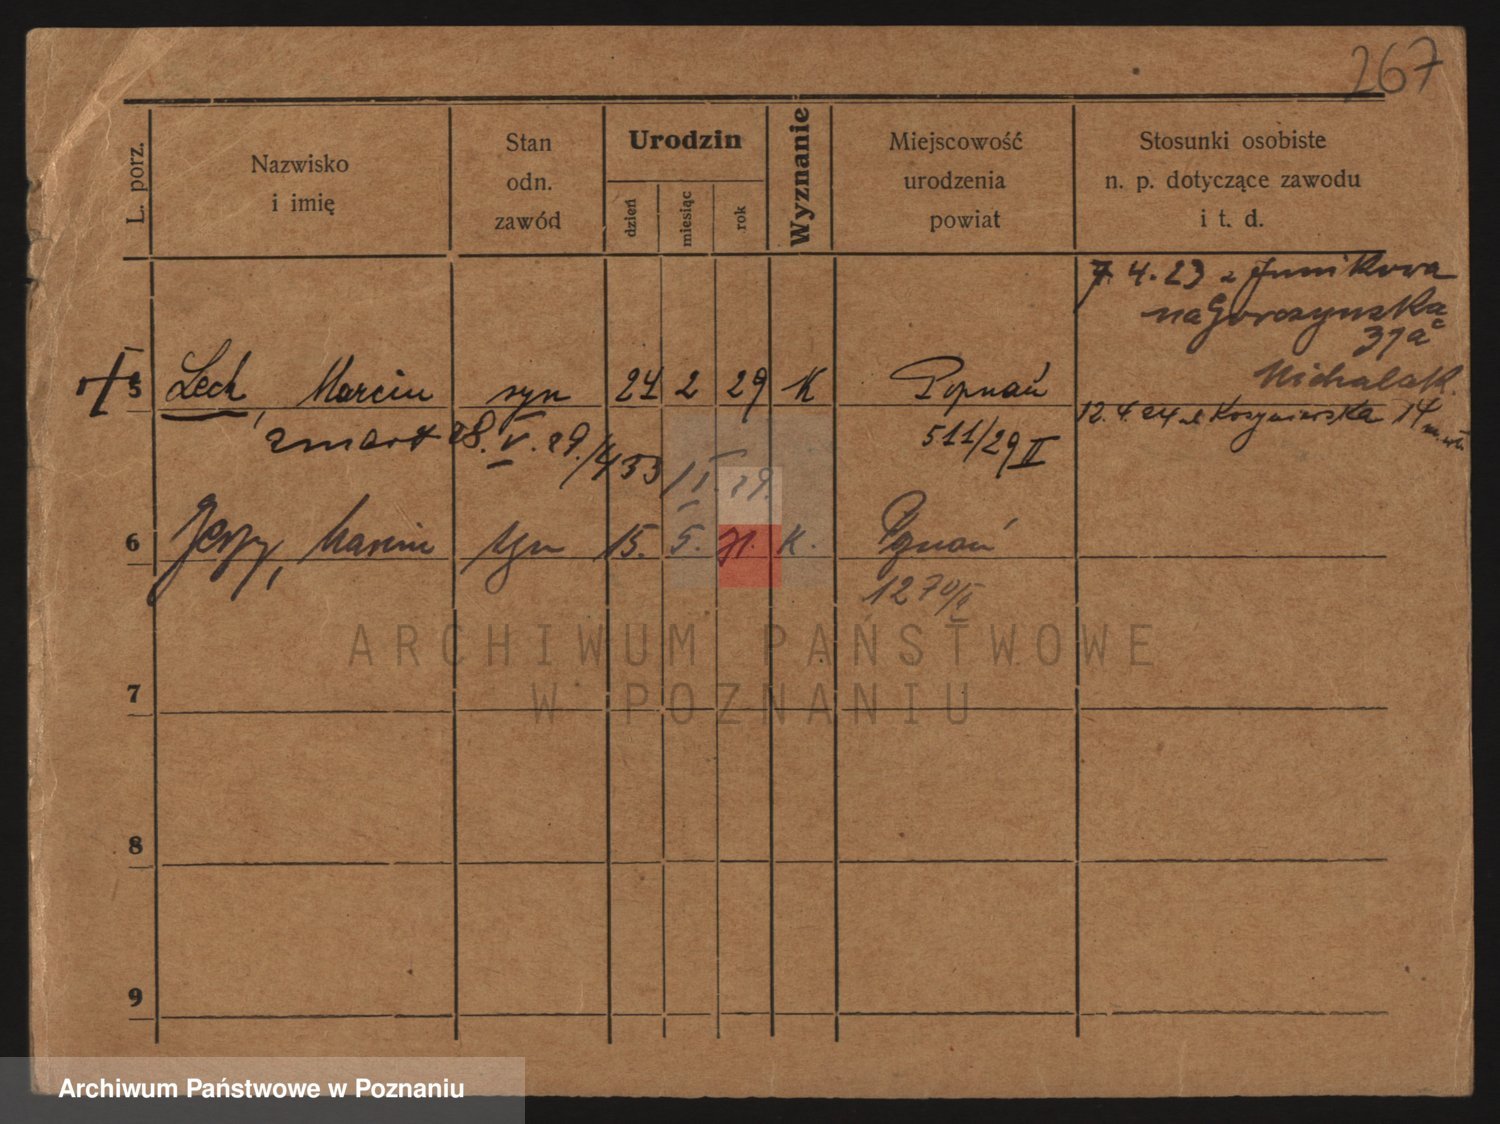 267
L. porz.
Nazwisko
i imię
Stan
odn.
zawód
Urodzin
dzień
miesiąc
rok
Wyznanie
Miejscowość
urodzenia
powiat
Stosunki osobiste
n. p. dotyczące zawodu
i t. d.
7.4.23 z Junikowa
na Gorczynska
37a
Michalak.
5 Lech, Marcin syn 24 2 29 K Poznań
12.4.24
14
zmarł 28.V.29./433
511/29 II
6 Jerzy, Marcin syn 15. 5. 31. K. Poznań
1270/II
7
8
9
ARCHIWUM PAŃSTWOWE
W POZNANIU
Archiwum Państwowe w Poznaniu